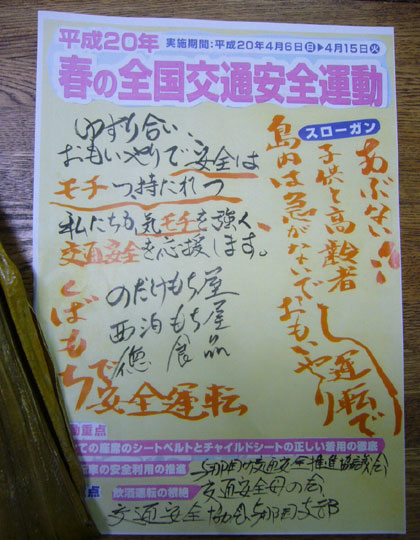 平成20年 実施期間：平成20年4月6日㊐▶4月15日㊋
春の全国交通安全運動
スローガン
あぶない!
子供と高齢者
島内は急がないで、おもいやり
運転で
ゆずり合い、
おもいやりで安全は
モチつ持たれつ
私たちも気モチを強く、
交通安全を応援します。
のだけもち屋
西泊もち屋
徳食品
くばもちで
安全運転
動重点
ての座席のシートベルトとチャイルドシートの正しい着用の徹底
車の安全利用の推進 与那国町交通安全推進協議会
点 飲酒運転の根絶 交通安全母の会
交通安全協会与那国支部